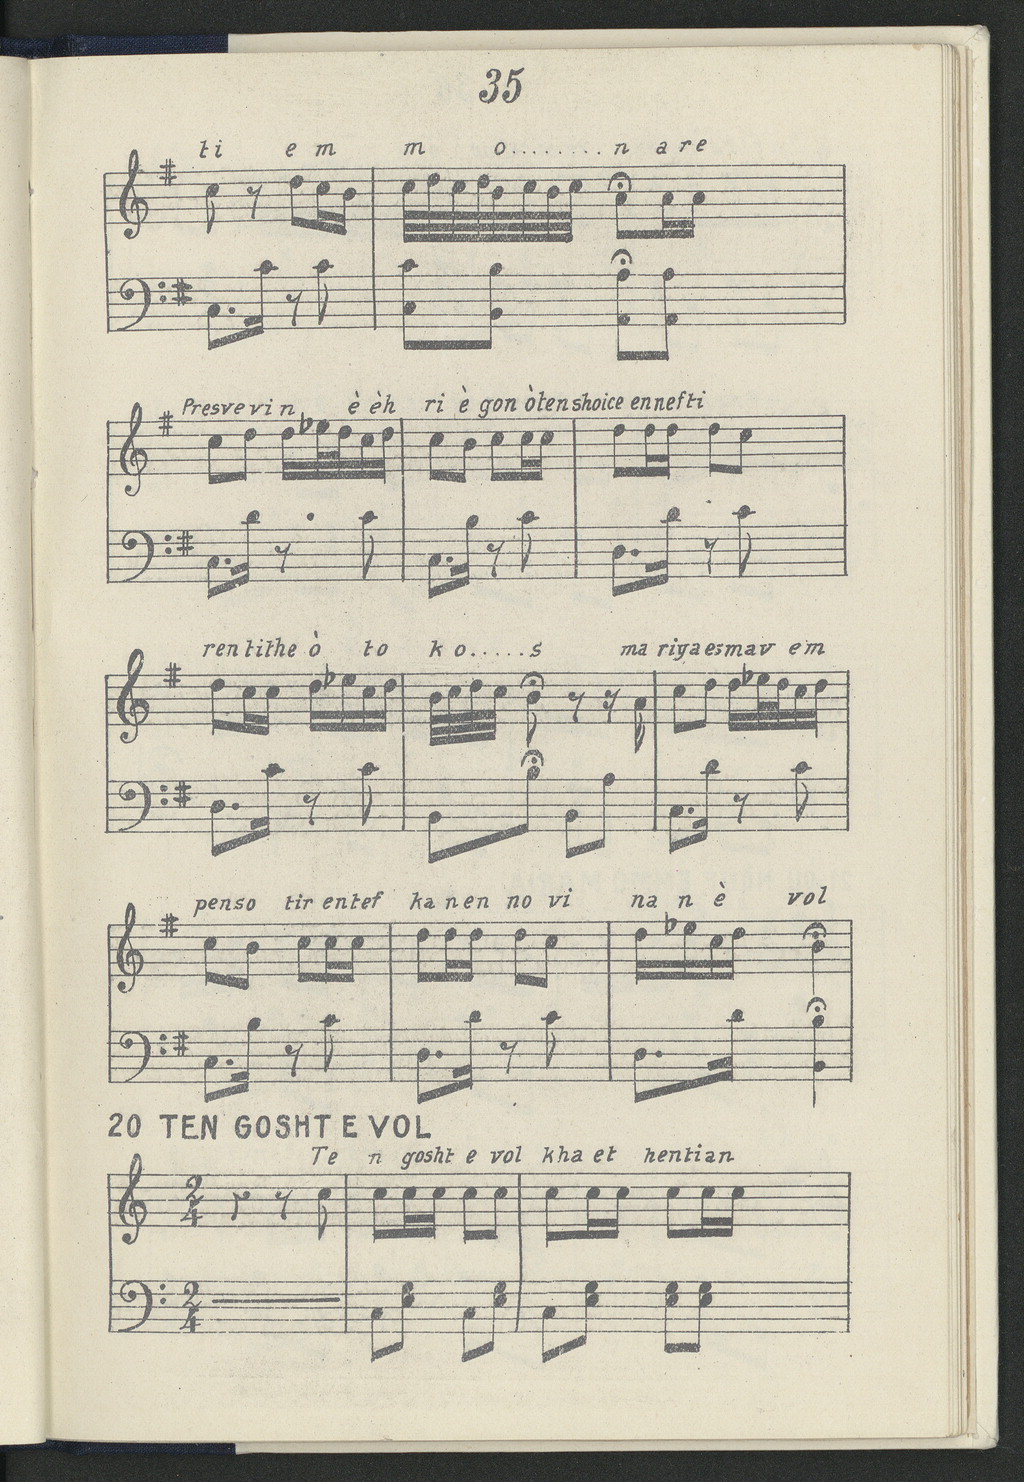 35
ti em m o........n are
Presvevin è èh ri è gon òtenshoice ennefti
rentithe ò to ko.....s mariyaesmav em
penso tirentef kanen no vi na n è vol
20 TEN GOSHT E VOL
Te n gosht e vol kha et hentian
2
4
2
4